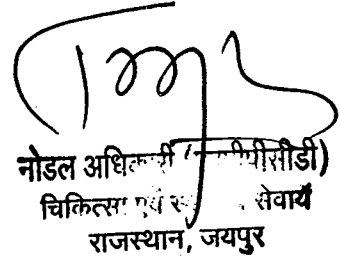 नोडल अधिकारी
चिकित्सा एवं सेवायें
राजस्थान, जयपुर